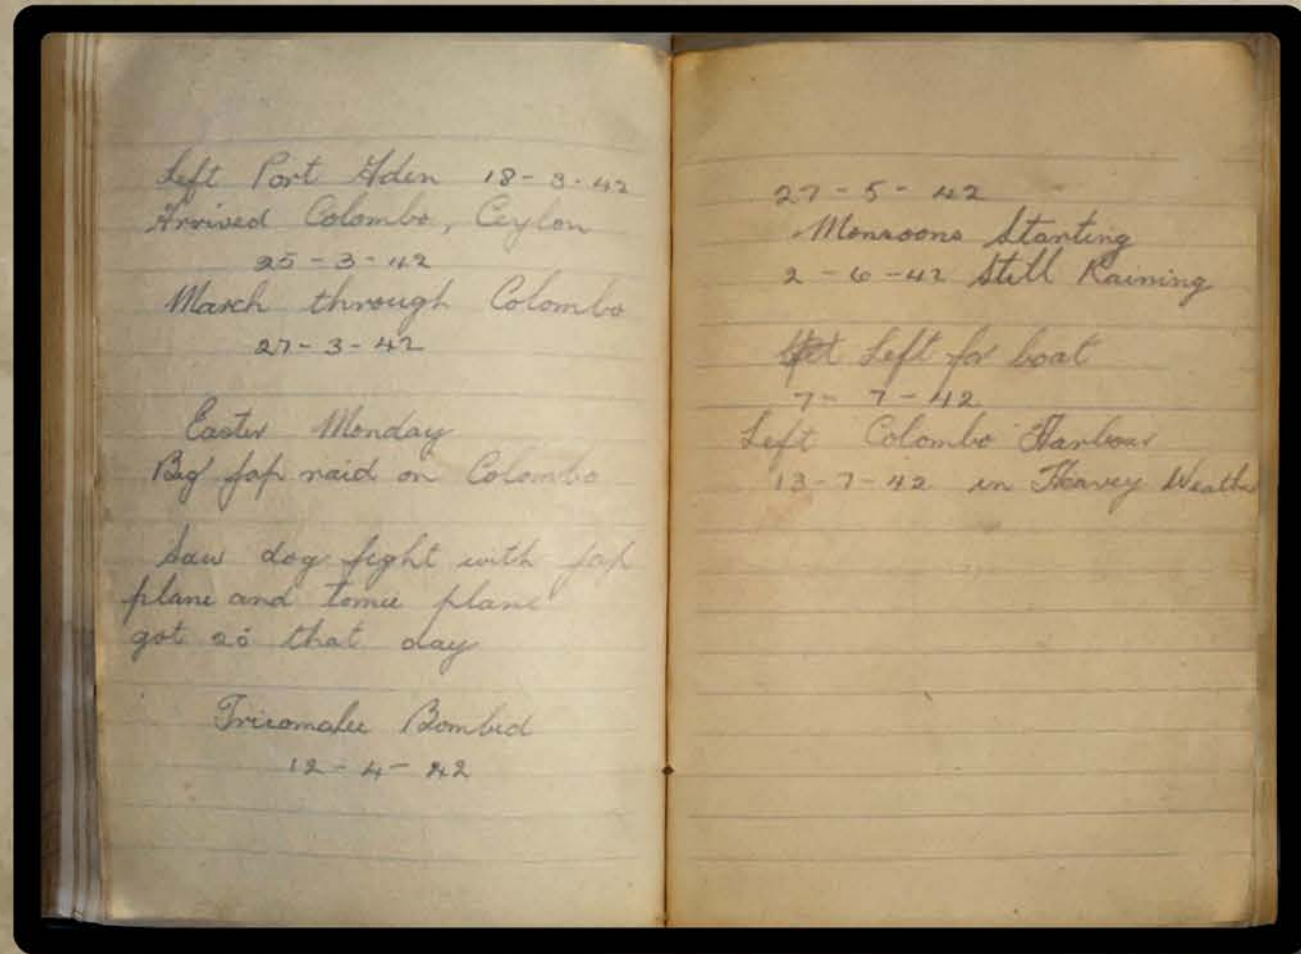 Left Port Aden 18-3-42
Arrived Colombo, Ceylon
25-3-42
March through Colombo
27-3-42
Easter Monday
Big Jap raid on Colombo
Saw dog fight with Jap
plane and tomie plane
got 25 that day
Tricomalee Bombed
12-4-42
27-5-42
Monsoons Starting
2-6-42 Still Raining
Left for boat
7-7-42
Left Colombo Harbour
13-7-42 in Heavey Weather